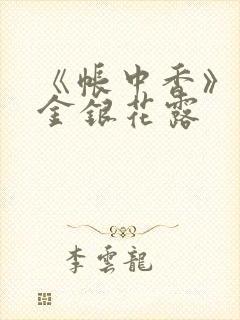 《帳中香》
金銀花露
李雲龍